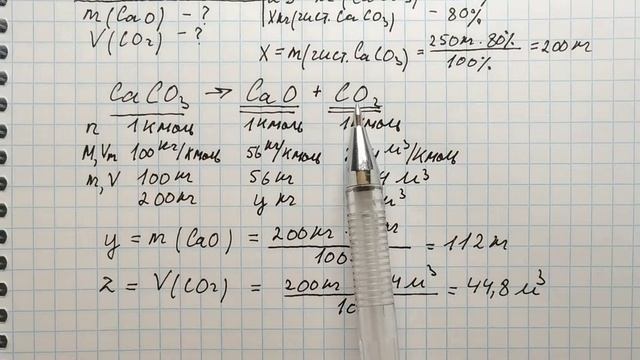 m(CaO) - ?
V(CO₂) - ?
Xкг(чист. CaCO₃) - 80%
X = m(чист. CaCO₃) = 250кг · 80% / 100% = 200кг
CaCO₃ → CaO + CO₂
n 1кмоль 1кмоль 1кмоль
M, Vm 100кг/кмоль 56кг/кмоль м³/кмоль
m, V 100кг 56кг м³
200кг y кг м³
y = m(CaO) = 200кг · / 100 = 112кг
z = V(CO₂) = 200кг м³ / = 44,8м³